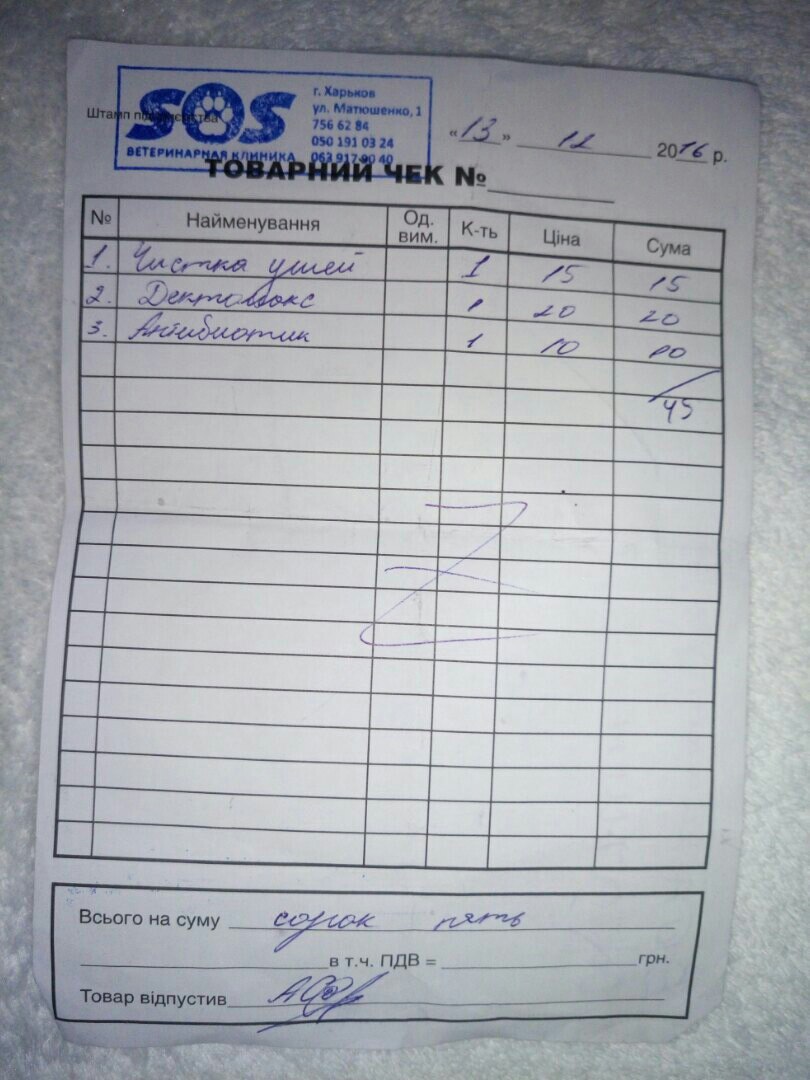 SOS
ВЕТЕРИНАРНАЯ КЛИНИКА
г. Харьков
ул. Матюшенко, 1
756 62 84
050 191 03 24
063 917 90 40
Штамп підприємства
«13» 12 2016 р.
ТОВАРНИЙ ЧЕК №
№ Найменування Од. вим. К-ть Ціна Сума
1. Чистка ушей 1 15 15
2. Дектомакс 1 20 20
3. Антибиотик 1 10 10
45
Всього на суму сорок пять
в т.ч. ПДВ = грн.
Товар відпустив